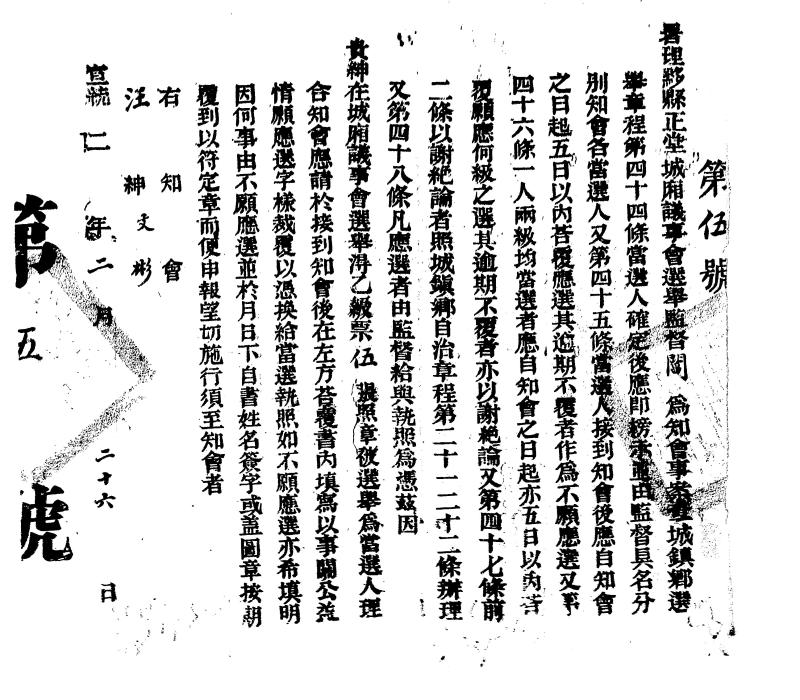 第伍號
署理黟縣正堂城廂議事會選舉監督閔 為知會事案查城鎮鄉選
舉章程第四十四條當選人確定後應即榜示並由監督具名分
別知會各當選人又第四十五條當選人接到知會後應自知會
之日起五日以內答覆應選其逾期不覆者作為不願應選又第
四十六條一人兩級均當選者應自知會之日起亦五日以內答
覆願應何級之選其逾期不覆者亦以謝絕論又第四十七條前
二條以謝絕論者照城鎮鄉自治章程第二十一二十二條辦理
又第四十八條凡應選者由監督給與執照為憑茲因
貴紳在城廂議事會選舉得乙級票伍張照章 選舉為當選人理
合知會應請於接到知會後在左方答覆書內填寫以事關公益
情願應選字樣裁覆以憑換給當選執照如不願應選亦希填明
因何事由不願應選並於月日下自書姓名簽字或蓋圖章按期
覆到以符定章而便申報望切施行須至知會者
右知會
汪紳文彬
宣統二年二月二十六日
第五號